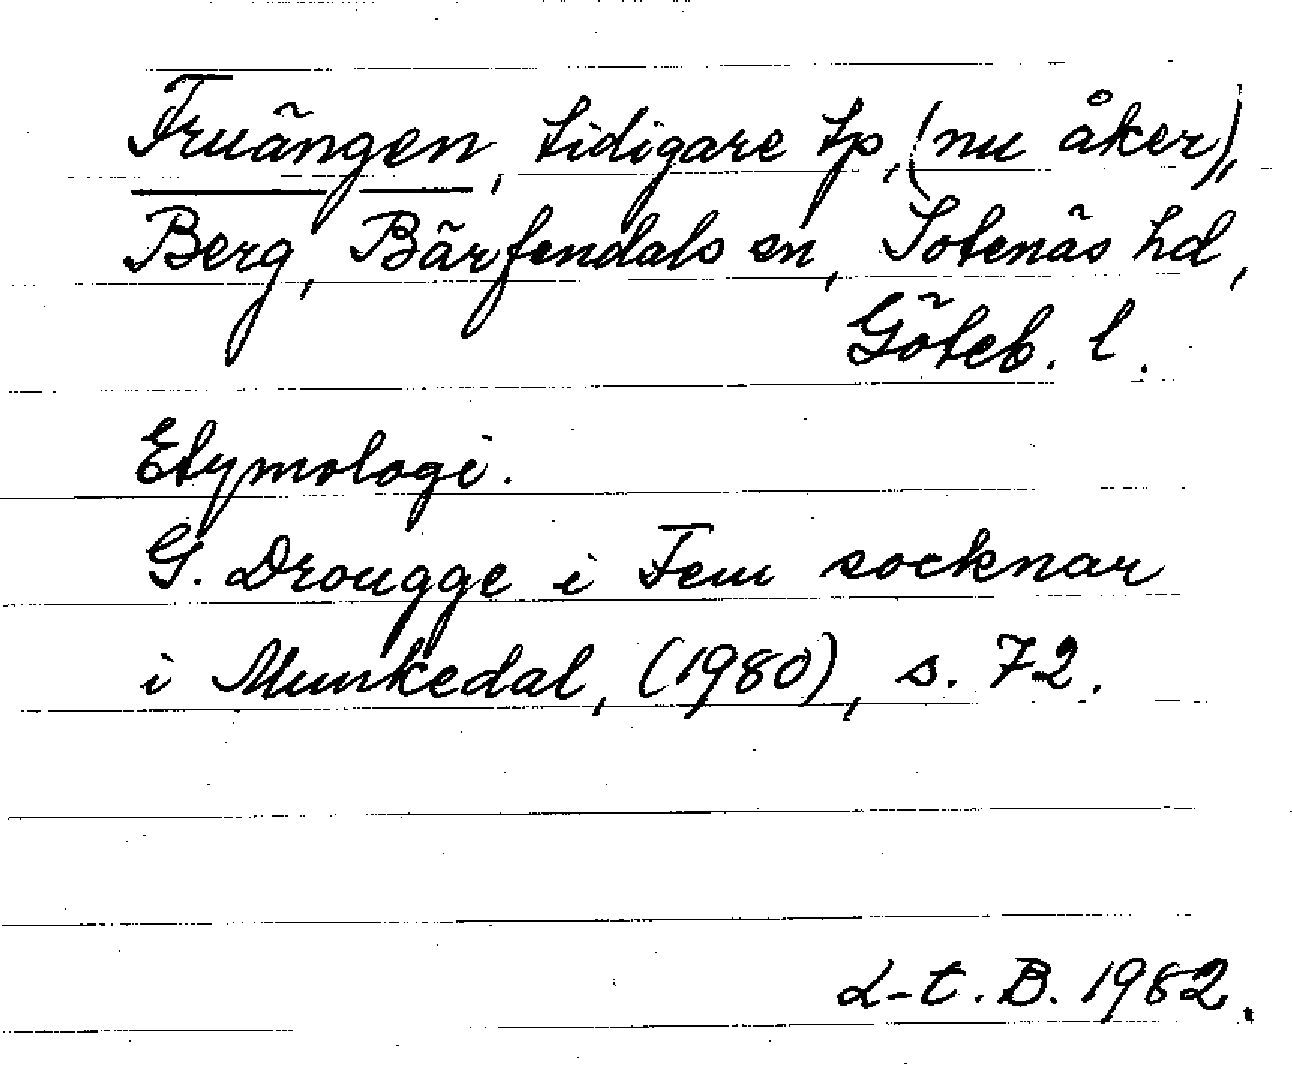 Fruängen, tidigare tp, (nu åker),
Berg, Bärfendals sn, Sotenäs hd,
Göteb. l.
Etymologi.
G. Drougge i Fem socknar
i Munkedal, (1980), s. 72.
L-t. B. 1982.